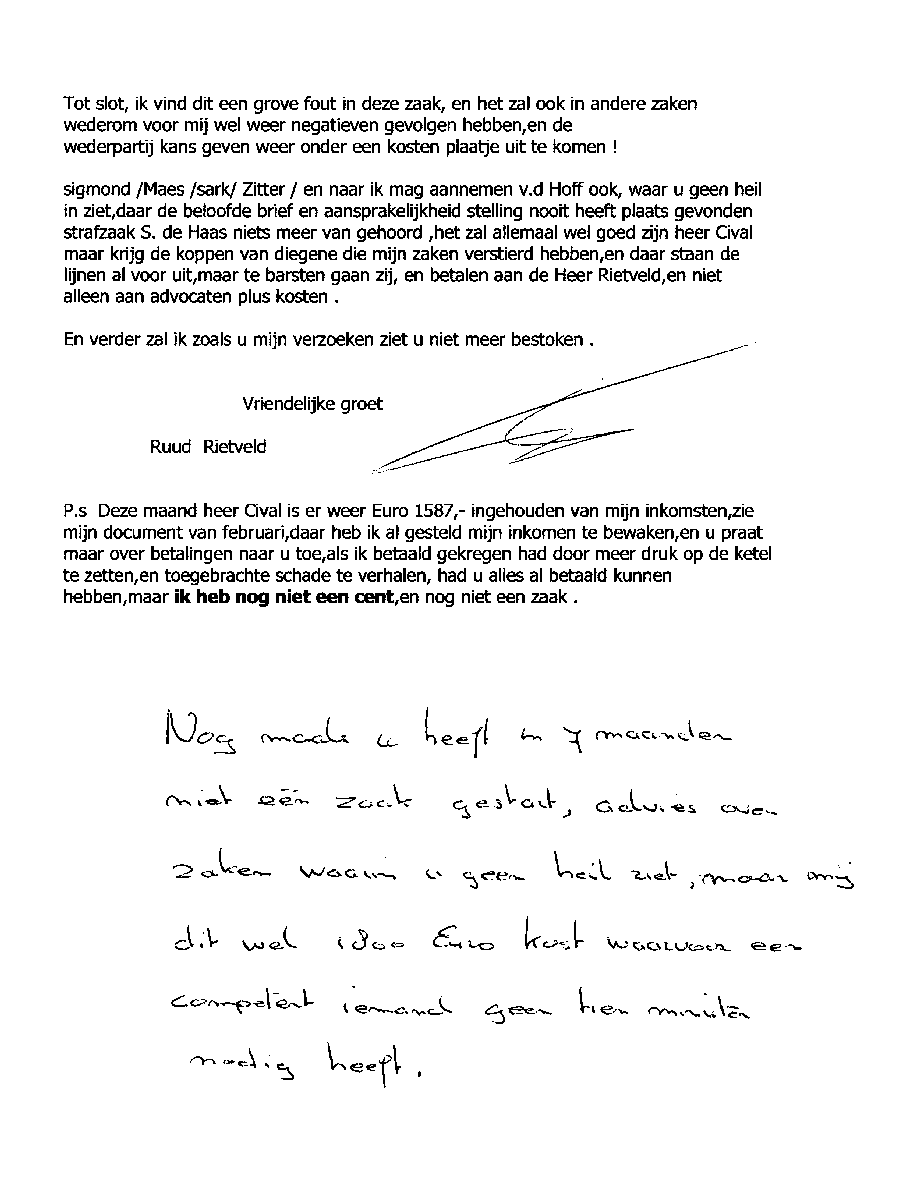 Tot slot, ik vind dit een grove fout in deze zaak, en het zal ook in andere zaken
wederom voor mij wel weer negatieven gevolgen hebben,en de
wederpartij kans geven weer onder een kosten plaatje uit te komen !
sigmond /Maes /sark/ Zitter / en naar ik mag aannemen v.d Hoff ook, waar u geen heil
in ziet,daar de beloofde brief en aansprakelijkheid stelling nooit heeft plaats gevonden
strafzaak S. de Haas niets meer van gehoord ,het zal allemaal wel goed zijn heer Cival
maar krijg de koppen van diegene die mijn zaken verstierd hebben,en daar staan de
lijnen al voor uit,maar te barsten gaan zij, en betalen aan de Heer Rietveld,en niet
alleen aan advocaten plus kosten .
En verder zal ik zoals u mijn verzoeken ziet u niet meer bestoken .
Vriendelijke groet
Ruud Rietveld
P.s Deze maand heer Cival is er weer Euro 1587,- ingehouden van mijn inkomsten,zie
mijn document van februari,daar heb ik al gesteld mijn inkomen te bewaken,en u praat
maar over betalingen naar u toe,als ik betaald gekregen had door meer druk op de ketel
te zetten,en toegebrachte schade te verhalen, had u alles al betaald kunnen
hebben,maar ik heb nog niet een cent,en nog niet een zaak .
Nog maals u heeft in 7 maanden
niet één zaak gestart, advies over
zaken waarin u geen heil ziet, maar mij
dit wel 1800 Euro kost waarvoor een
competent iemand geen tien minuten
nodig heeft.